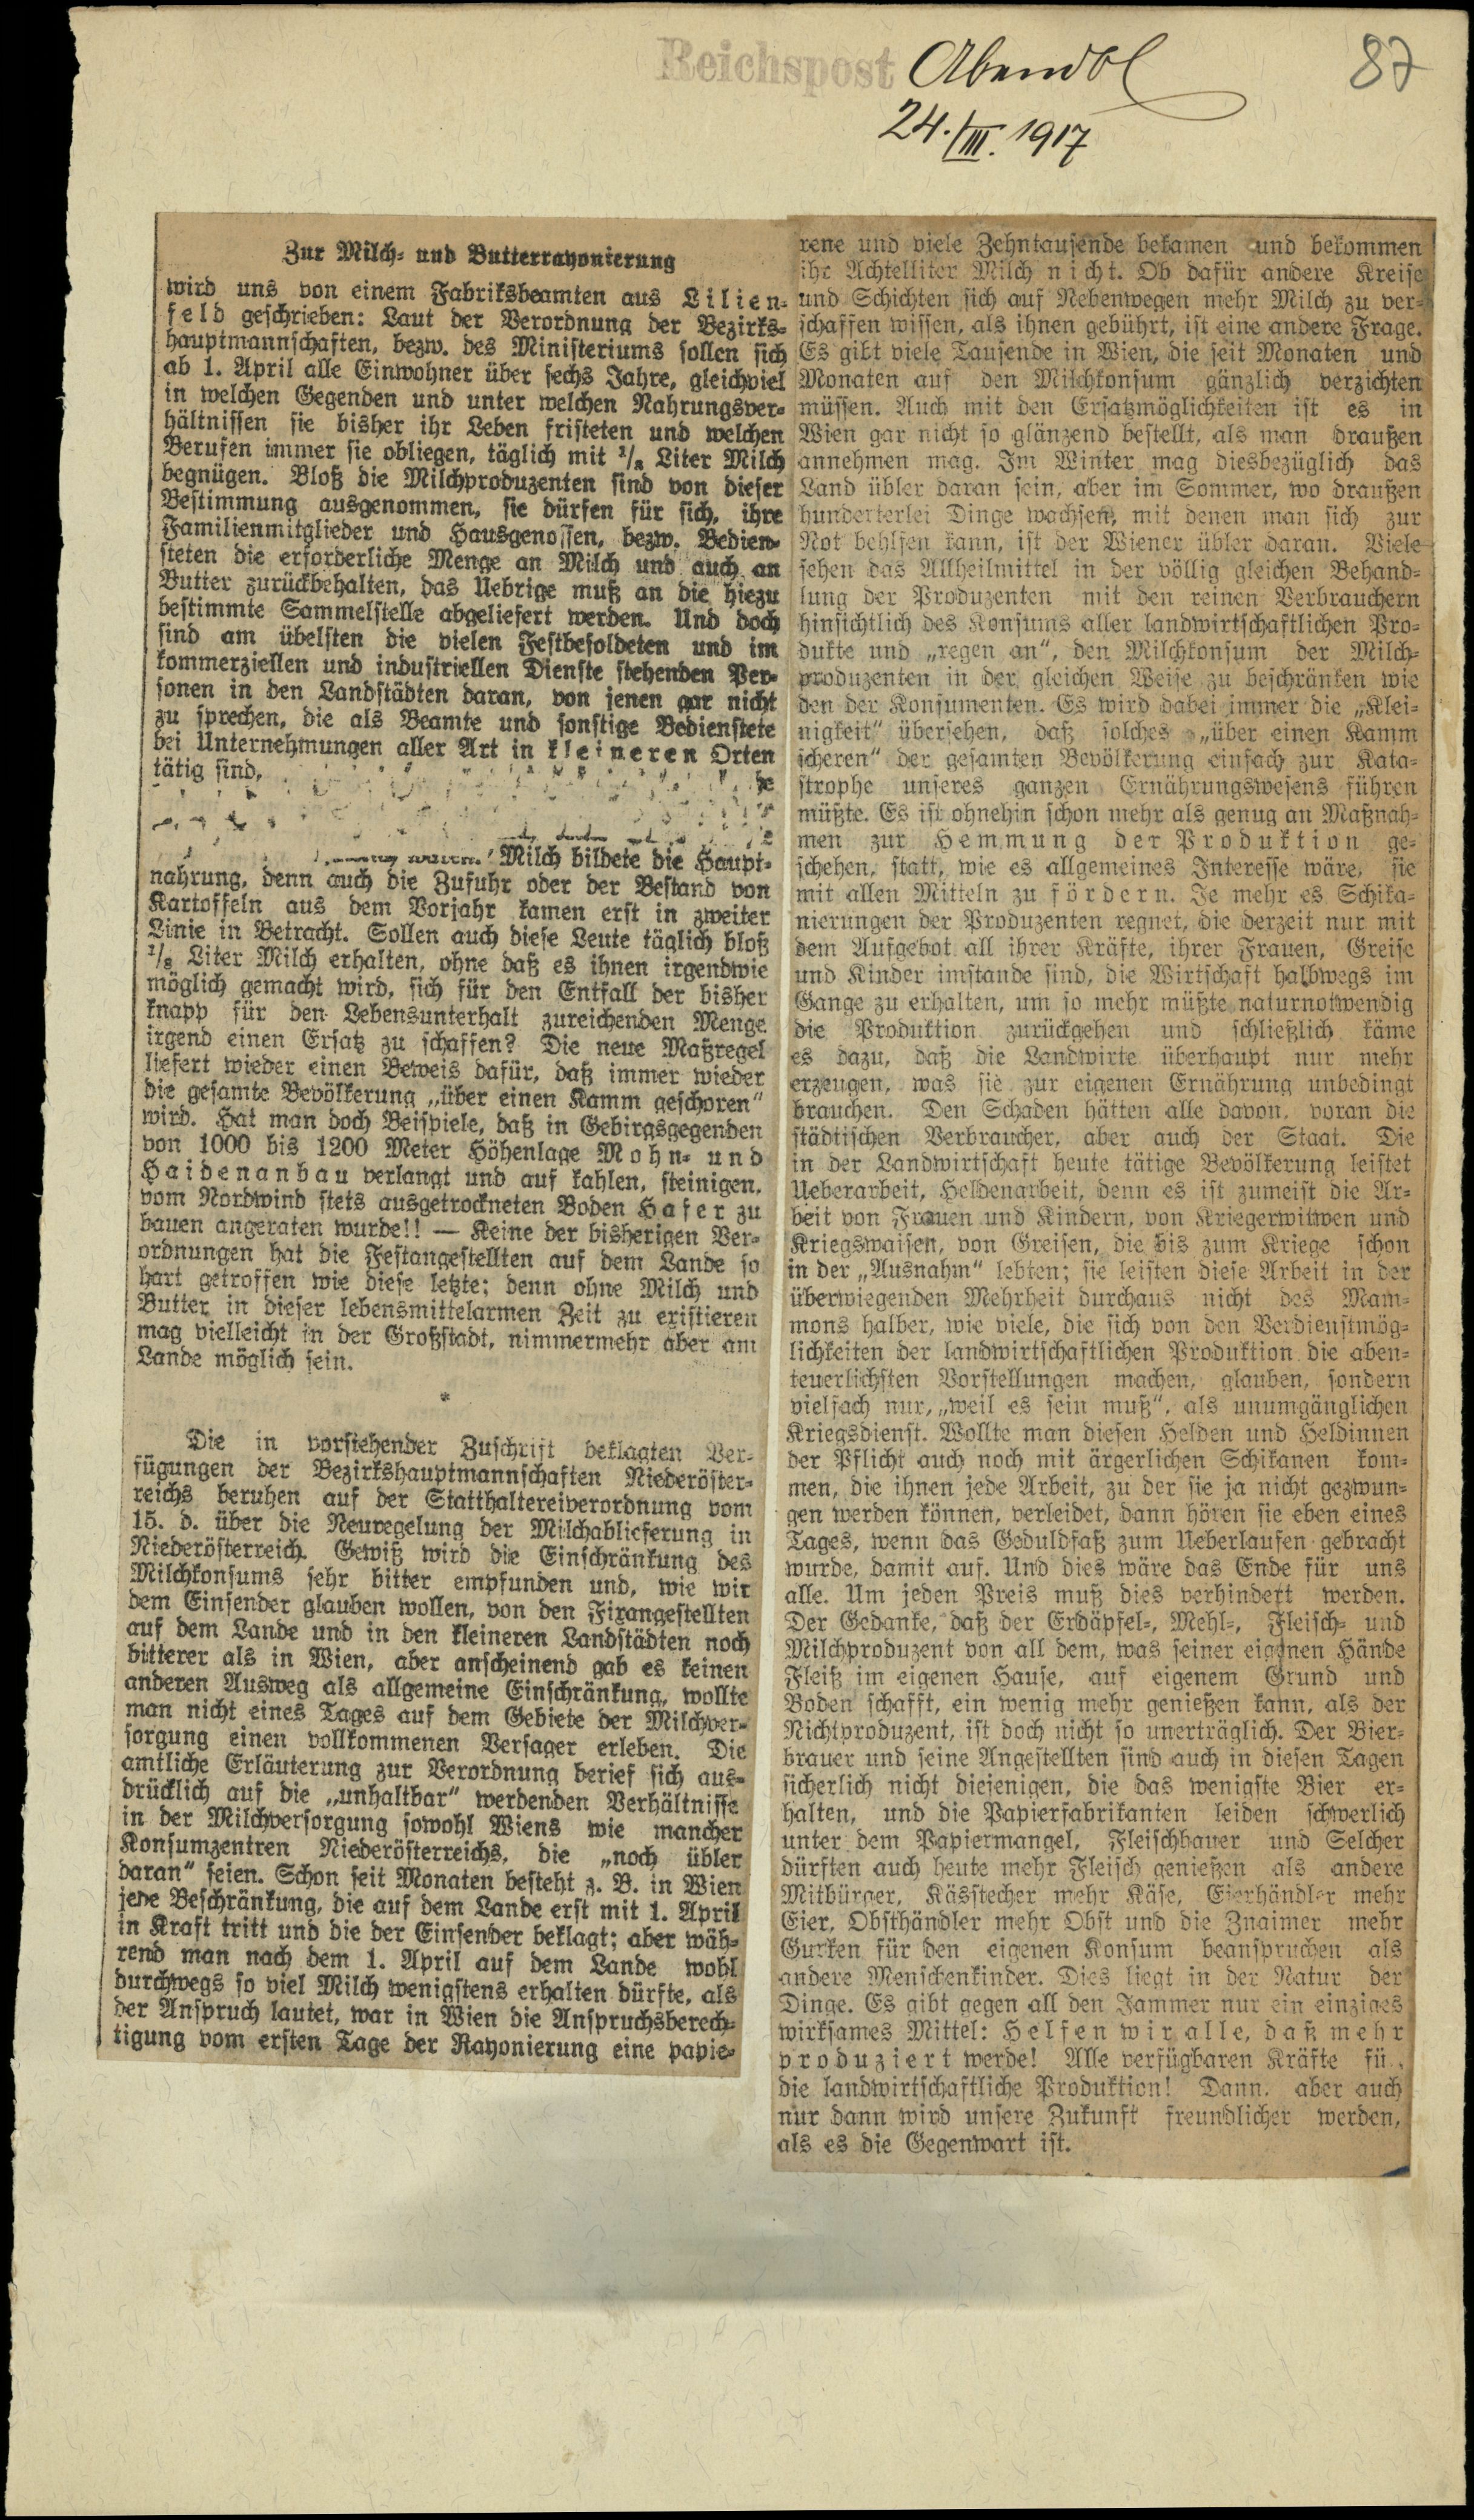 Reichspost Abendbl
87
24./III. 1917
Zur Milch- und Butterrayonierung
wird uns von einem Fabriksbeamten aus Lilien-
feld geschrieben: Laut der Verordnung der Bezirks-
hauptmannschaften, bezw. des Ministeriums sollen sich
ab 1. April alle Einwohner über sechs Jahre, gleichviel
in welchen Gegenden und unter welchen Nahrungsver-
hältnissen sie bisher ihr Leben fristeten und welchen
Berufen immer sie obliegen, täglich mit 1/8 Liter Milch
begnügen. Bloß die Milchproduzenten sind von dieser
Bestimmung ausgenommen, sie dürfen für sich, ihre
Familienmitglieder und Hausgenossen, bezw. Bedien-
steten die erforderliche Menge an Milch und auch an
Butter zurückbehalten, das Uebrige muß an die hiezu
bestimmte Sammelstelle abgeliefert werden. Und doch
sind am übelsten die vielen Festbesoldeten und im
kommerziellen und industriellen Dienste stehenden Per-
sonen in den Landstädten daran, von jenen gar nicht
zu sprechen, die als Beamte und sonstige Bedienstete
bei Unternehmungen aller Art in kleineren Orten
tätig sind,
Milch bildete die Haupt-
nahrung, denn auch die Zufuhr oder der Bestand von
Kartoffeln aus dem Vorjahr kamen erst in zweiter
Linie in Betracht. Sollen auch diese Leute täglich bloß
1/8 Liter Milch erhalten, ohne daß es ihnen irgendwie
möglich gemacht wird, sich für den Entfall der bisher
knapp für den Lebensunterhalt zureichenden Menge
irgend einen Ersatz zu schaffen? Die neue Maßregel
liefert wieder einen Beweis dafür, daß immer wieder
die gesamte Bevölkerung „über einen Kamm geschoren“
wird. Hat man doch Beispiele, daß in Gebirgsgegenden
von 1000 bis 1200 Meter Höhenlage Mohn- und
Haidenanbau verlangt und auf kahlen, steinigen,
vom Nordwind stets ausgetrockneten Boden Hafer zu
bauen angeraten wurde!! — Keine der bisherigen Ver-
ordnungen hat die Festangestellten auf dem Lande so
hart getroffen wie diese letzte; denn ohne Milch und
Butter in dieser lebensmittelarmen Zeit zu existieren
mag vielleicht in der Großstadt, nimmermehr aber am
Lande möglich sein.
*
Die in vorstehender Zuschrift beklagten Ver-
fügungen der Bezirkshauptmannschaften Niederöster-
reichs beruhen auf der Statthaltereiverordnung vom
15. d. über die Neuregelung der Milchablieferung in
Niederösterreich. Gewiß wird die Einschränkung des
Milchkonsums sehr bitter empfunden und, wie wir
dem Einsender glauben wollen, von den Fixangestellten
auf dem Lande und in den kleineren Landstädten noch
bitterer als in Wien, aber anscheinend gab es keinen
anderen Ausweg als allgemeine Einschränkung, wollte
man nicht eines Tages auf dem Gebiete der Milchver-
sorgung einen vollkommenen Versager erleben. Die
amtliche Erläuterung zur Verordnung berief sich aus-
drücklich auf die „unhaltbar“ werdenden Verhältnisse
in der Milchversorgung sowohl Wiens wie mancher
Konsumzentren Niederösterreichs, die „noch übler
daran“ seien. Schon seit Monaten besteht z. B. in Wien
jede Beschränkung, die auf dem Lande erst mit 1. April
in Kraft tritt und die der Einsender beklagt; aber wäh-
rend man nach dem 1. April auf dem Lande wohl
durchwegs so viel Milch wenigstens erhalten dürfte, als
der Anspruch lautet, war in Wien die Anspruchsberech-
tigung vom ersten Tage der Rayonierung eine papie-
rene und viele Zehntausende bekamen und bekommen
ihr Achtelliter Milch nicht. Ob dafür andere Kreise
und Schichten sich auf Nebenwegen mehr Milch zu ver-
schaffen wissen, als ihnen gebührt, ist eine andere Frage.
Es gibt viele Tausende in Wien, die seit Monaten und
Monaten auf den Milchkonsum gänzlich verzichten
müssen. Auch mit den Ersatzmöglichkeiten ist es in
Wien gar nicht so glänzend bestellt, als man draußen
annehmen mag. Im Winter mag diesbezüglich das
Land übler daran sein, aber im Sommer, wo draußen
hunderterlei Dinge wachsen, mit denen man sich zur
Not behlfen kann, ist der Wiener übler daran. Viele
sehen das Allheilmittel in der völlig gleichen Behand-
lung der Produzenten mit den reinen Verbrauchern
hinsichtlich des Konsums aller landwirtschaftlichen Pro-
dukte und „regen an“, den Milchkonsum der Milch-
produzenten in der gleichen Weise zu beschränken wie
den der Konsumenten. Es wird dabei immer die „Klei-
nigkeit“ übersehen, daß solches „über einen Kamm
scheren“ der gesamten Bevölkerung einfach zur Kata-
strophe unseres ganzen Ernährungswesens führen
müßte. Es ist ohnehin schon mehr als genug an Maßnah-
men zur Hemmung der Produktion ge-
schehen, statt, wie es allgemeines Interesse wäre, sie
mit allen Mitteln zu fördern. Je mehr es Schika-
nierungen der Produzenten regnet, die derzeit nur mit
dem Aufgebot all ihrer Kräfte, ihrer Frauen, Greise
und Kinder imstande sind, die Wirtschaft halbwegs im
Gange zu erhalten, um so mehr müßte naturnotwendig
die Produktion zurückgehen und schließlich käme
es dazu, daß die Landwirte überhaupt nur mehr
erzeugen, was sie zur eigenen Ernährung unbedingt
brauchen. Den Schaden hätten alle davon, voran die
städtischen Verbraucher, aber auch der Staat. Die
in der Landwirtschaft heute tätige Bevölkerung leistet
Ueberarbeit, Heldenarbeit, denn es ist zumeist die Ar-
beit von Frauen und Kindern, von Kriegerwitwen und
Kriegswaisen, von Greisen, die bis zum Kriege schon
in der „Ausnahm“ lebten; sie leisten diese Arbeit in der
überwiegenden Mehrheit durchaus nicht des Mam-
mons halber, wie viele, die sich von den Verdienstmög-
lichkeiten der landwirtschaftlichen Produktion die aben-
teuerlichsten Vorstellungen machen, glauben, sondern
vielfach nur, „weil es sein muß“, als unumgänglichen
Kriegsdienst. Wollte man diesen Helden und Heldinnen
der Pflicht auch noch mit ärgerlichen Schikanen kom-
men, die ihnen jede Arbeit, zu der sie ja nicht gezwun-
gen werden können, verleidet, dann hören sie eben eines
Tages, wenn das Geduldfaß zum Ueberlaufen gebracht
wurde, damit auf. Und dies wäre das Ende für uns
alle. Um jeden Preis muß dies verhindert werden.
Der Gedanke, daß der Erdäpfel-, Mehl-, Fleisch- und
Milchproduzent von all dem, was seiner eigenen Hände
Fleiß im eigenen Hause, auf eigenem Grund und
Boden schafft, ein wenig mehr genießen kann, als der
Nichtproduzent, ist doch nicht so unerträglich. Der Bier-
brauer und seine Angestellten sind auch in diesen Tagen
sicherlich nicht diejenigen, die das wenigste Bier er-
halten, und die Papierfabrikanten leiden schwerlich
unter dem Papiermangel, Fleischhauer und Selcher
dürften auch heute mehr Fleisch genießen als andere
Mitbürger, Kässtecher mehr Käse, Eierhändler mehr
Eier, Obsthändler mehr Obst und die Znaimer mehr
Gurken für den eigenen Konsum beanspruchen als
andere Menschenkinder. Dies liegt in der Natur der
Dinge. Es gibt gegen all den Jammer nur ein einziges
wirksames Mittel: Helfen wir alle, daß mehr
produziert werde! Alle verfügbaren Kräfte fü
die landwirtschaftliche Produktion! Dann, aber auch
nur dann wird unsere Zukunft freundlicher werden,
als es die Gegenwart ist.